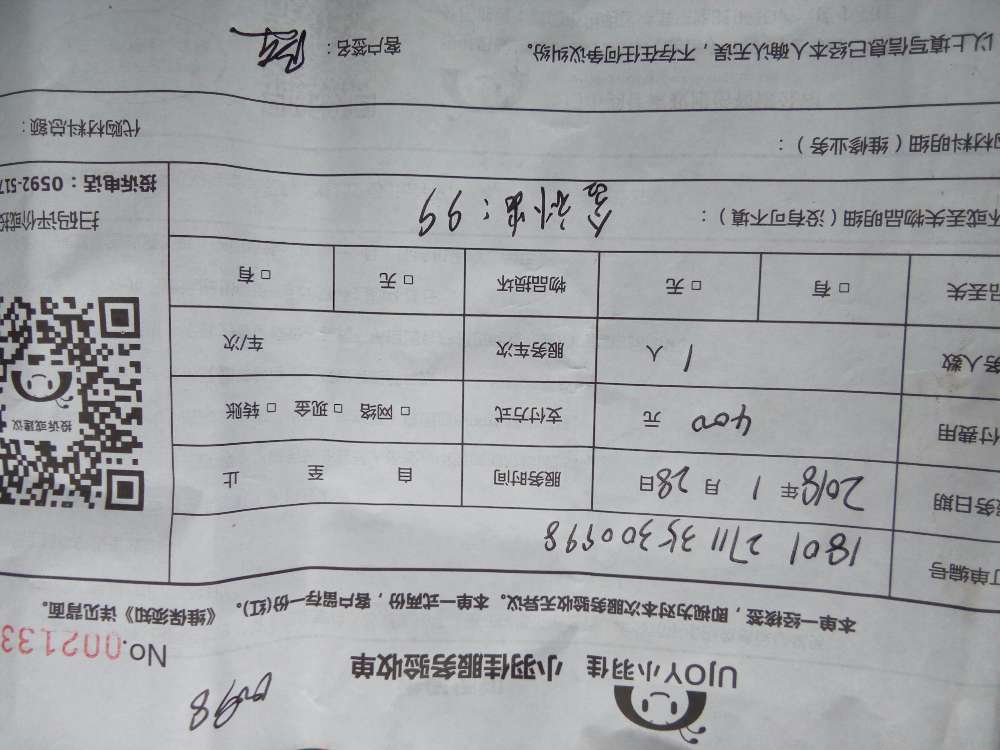 UJOY小羽佳 小羽佳服务验收单
No.002133
本单一经核签，即视为对本次服务验收无异议。本单一式两份，客户留存一份(红)。《维保须知》详见背面。
订单编号 1801 2711 35300598
服务日期 2018年 1 月 28日 服务时间 自 至 止
付费用 400 元 支付方式 □ 网络 □ 现金 □ 转账
服务人数 1 人 服务车次 车/次
品丢失 □ 有 □ 无 物品损坏 □ 无 □ 有
投诉或建议
扫码评价或投
投诉电话：0592-517
坏或丢失物品明细（没有可不填）： 99
购材料明细（维修业务）： 代购材料总额：
以上填写信息已经本人确认无误，不存在任何争议纠纷。 客户签名：